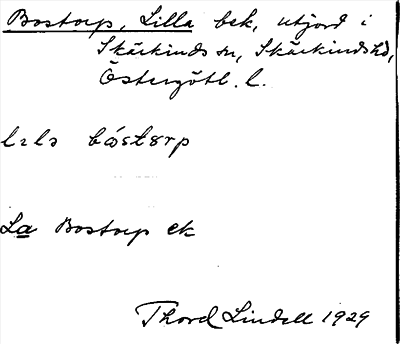 Bostorp, Lilla bek, utjord i
Skärkinds sn, Skärkinds hd,
Östergötl. l.
lɩla bóstɜrp
La Bostorp ek
Thord Lindell 1929